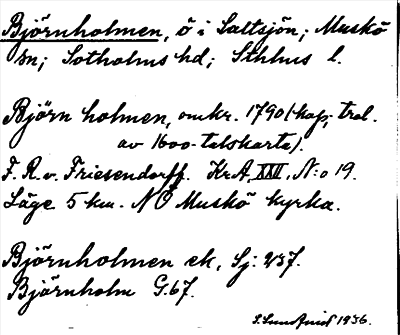 Björnholmen, ö i Saltsjön; Muskö
sn; Sotholms hd; Sthlms l.
Björn holmen, omkr. 1790 (kop. trol.
av 1600-talskarta).
F. R. v. Friesendorff. KrA, XXI, N:o 19.
Läge 5 km. NÖ Muskö kyrka.
Björnholmen ek, Sj: 237.
Björnholm G. 67.
S. Lundquist 1936.